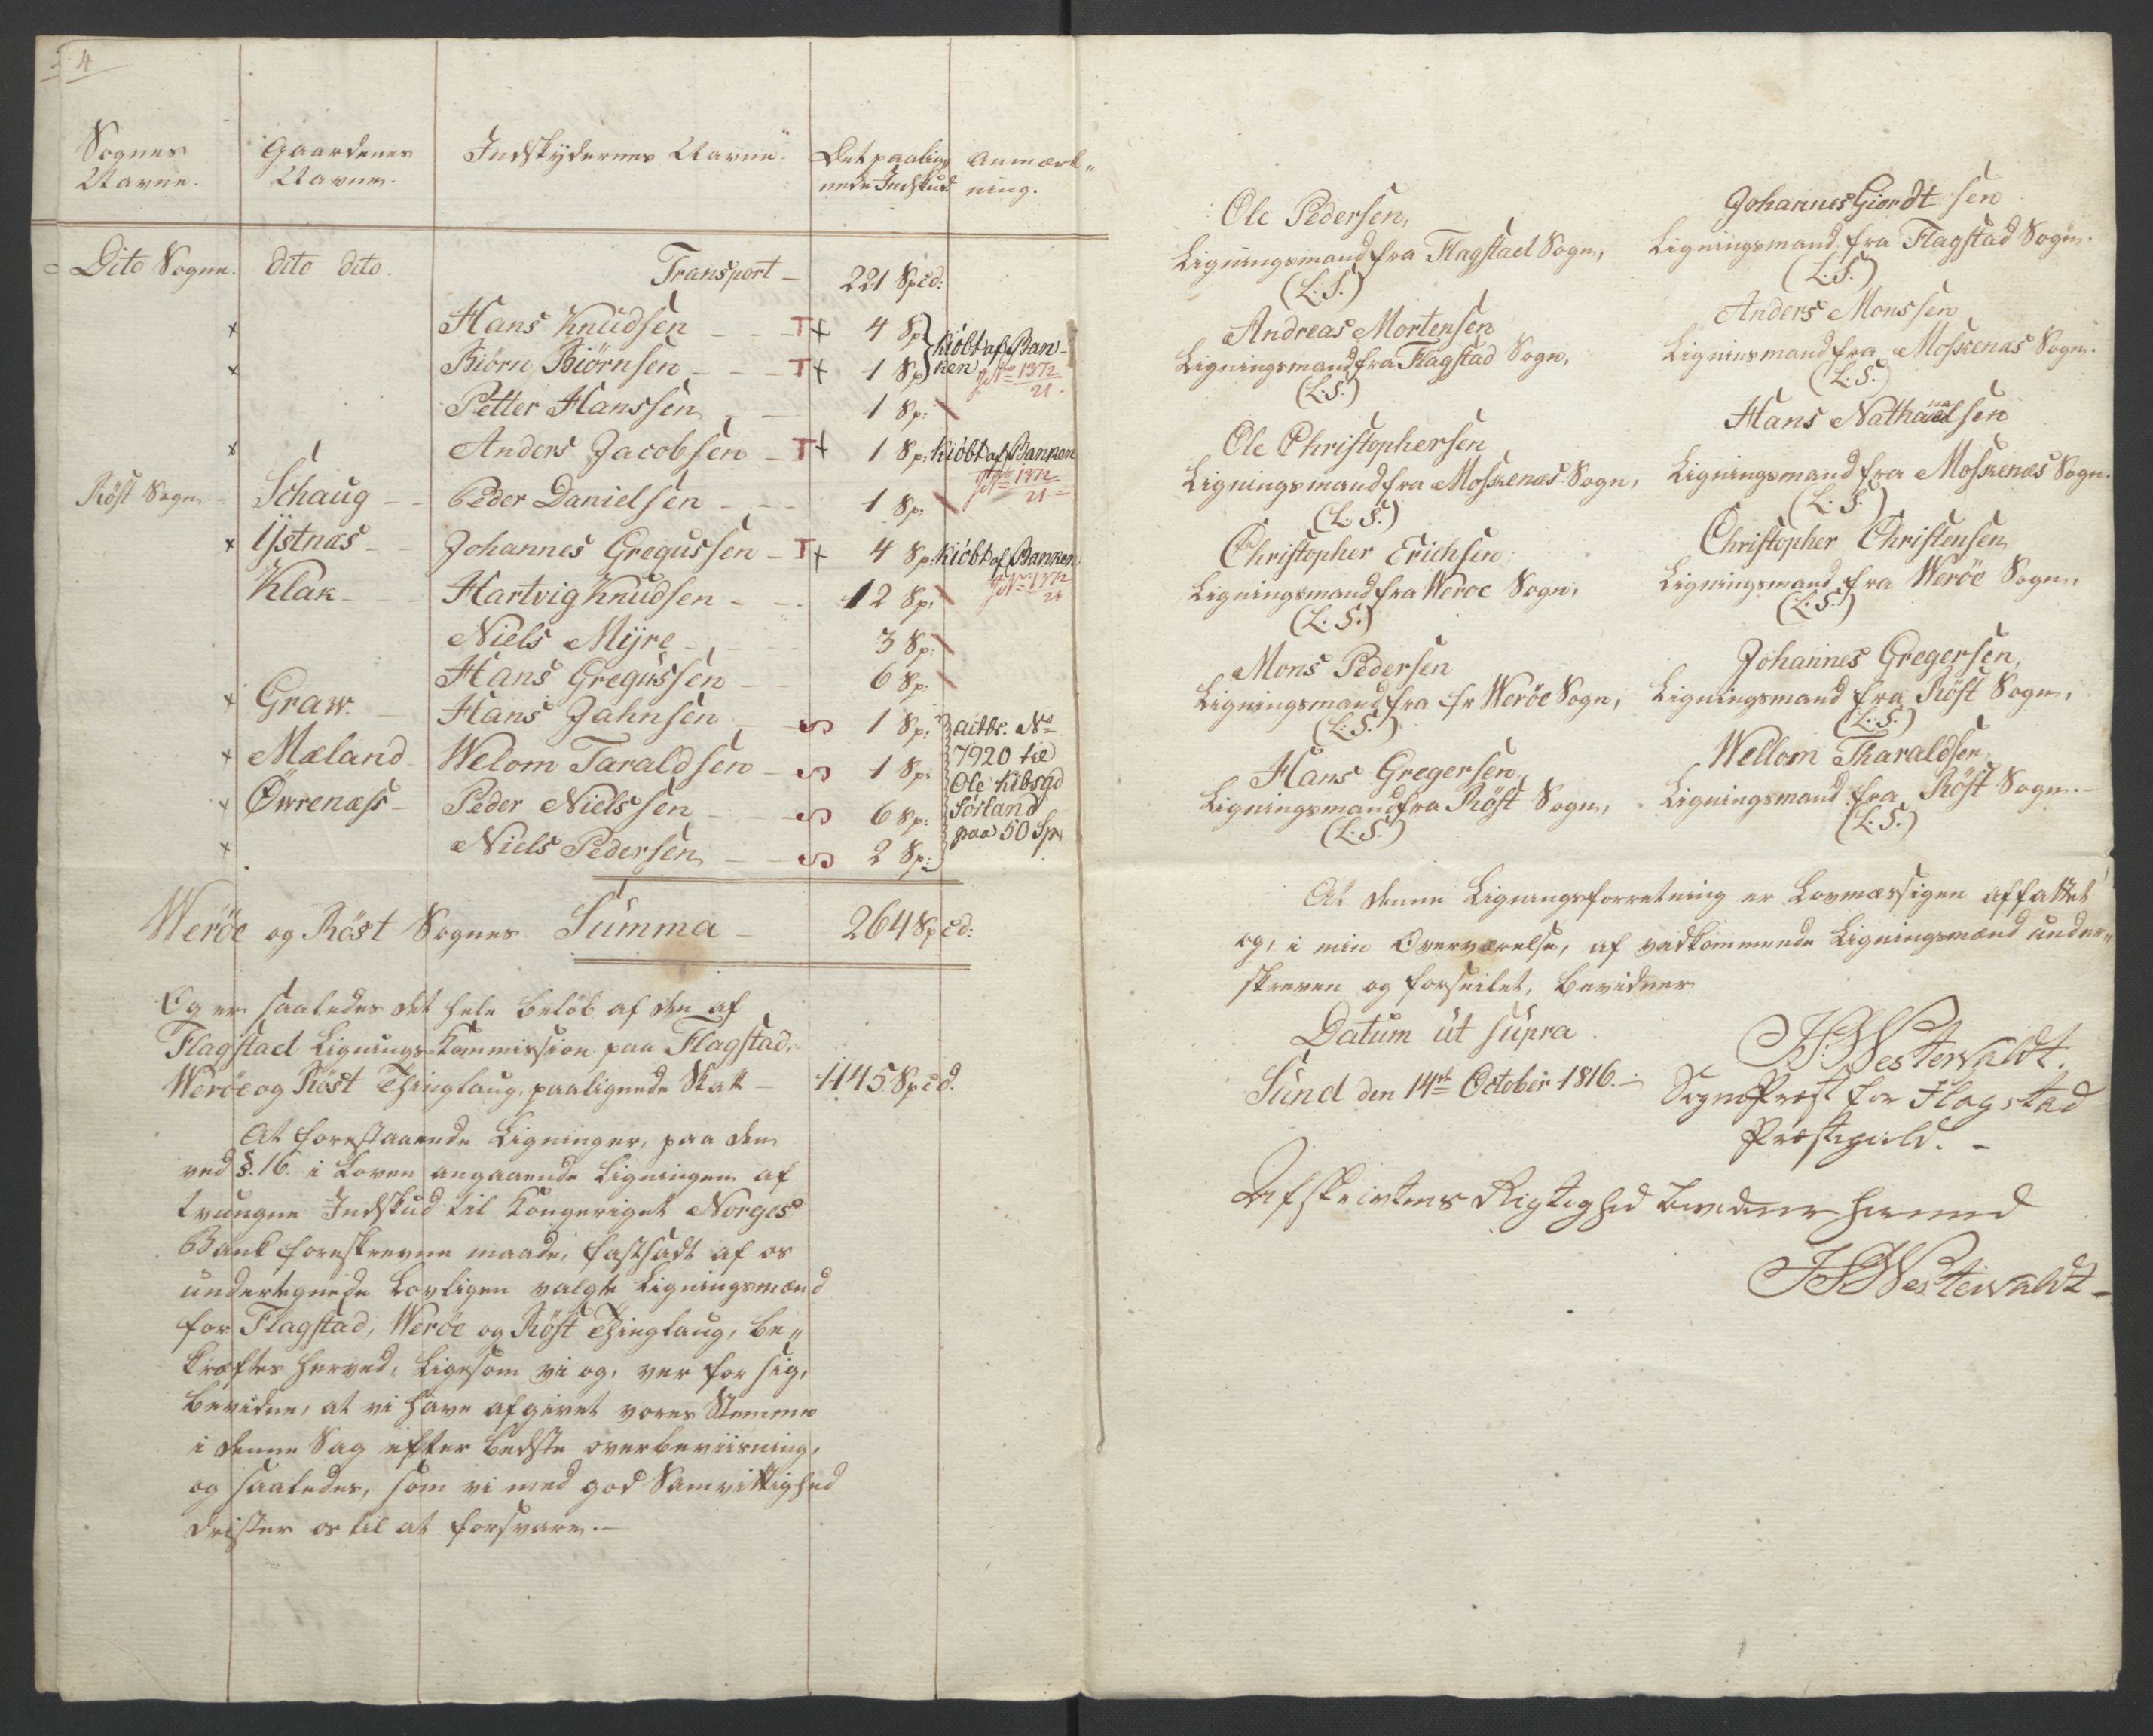 4
Sognes Navne. Gaardenes Navne. Indskydernes Navne. Det paalignede Indskud. Anmærkning.
Dito Sogne. dito dito. Transport – 221 Spcd:
x Hans Knudsen – – T+ 4 Sp } Kiöbt af Ban-
x Biörn Biörnsen – – – T+ 1 Sp } ken No 1372/21.
Petter Hanssen – – 1 Sp:
x Anders Jacobsen – T+ 1 Sp: Kiöbt af Banken
Röst Sogn – Schaug – – Peder Danielsen – – – 1 Sp: No 1372/21
x Ystnæs – – Johannes Gregussen – T+ 4 Sp: Kiöbt af Banken
Klak – – Hartvig Knudsen – – 12 Sp: No 1372/21
Niels Myre – – 3 Sp:
Hans Gregussen – – 6 Sp:
x Graw. – Hans Jahnsen – S 1 Sp: actbr. No
x Mæland – Welom Taraldsen – S 1 Sp: 7920 til
x Öwrenæss – Peder Nielssen – – S 6 Sp: Ole Kibsgd Sörland
x Niels Pedersen – – S 2 Sp: paa 50 Sp
Weröe og Röst Sognes Summa – 264 Spcd:
Og er saaledes det hele beløb af den af
Flagstad Lignings-Kommission paa Flagstad,
Weröe og Röst Thinglaug, paalignede Skat – 1145 Spcd.
At forestaaende Ligninger, paa den
ved §. 16. i Loven angaaende Ligningen af
tvungne Indskud til Kongeriget Norges
Bank foreskrevne maade, fastsadt af os
undertegnede Lovligen valgte Ligningsmænd
for Flagstad, Weröe og Röst Thinglaug, be„
kræftes herved, ligesom vi og, ver for sig,
bevidne, at vi have afgivet vores Stemme
i denne Sag efter bedste overbeviisning,
og saaledes, som vi med god Samvittighed
drister os til at forsvare. –
Ole Pedersen,
Ligningsmand fra Flagstad Sogn,
(L.S.)
Andreas Mortensen
Ligningsmand fra Flagstad Sogn,
(L.S.)
Ole Christophersen
Ligningsmand fra Moskenæs Sogn,
(L.S.)
Christopher Erichsen
Ligningsmand fra Weroe Sogn,
(L.S.)
Mons Pedersen
Ligningsmand fra fr Weröe Sogn,
(L.S.)
Hans Gregersen,
Ligningsmand fra Röst Sogn,
(L.S.)
Johannes Giordtsen
Ligningsmand fra Flagstad Sogn.
(L.S.)
Anders Monssen
Ligninsmand fra Moskenæs Sogn.
(L.S.)
Hans Nathanaelsen
Ligningsmand fra Moskenæs Sogn.
(L.S.)
Christopher Christensen
Ligningsmand fra Weröe Sogn,
(L.S.)
Johannes Gregersen,
Ligningsmand fra Röst Sogn,
(L.S.)
Wellom Tharaldsen
Ligningsmand fra Röst Sogn. –
(L.S.)
At denne Ligningsforretning er Lovmæssigen affattet
og, i min Overværelse, af vedkommende Ligningsmænd under„
skreven og forseilet, bevidner
Datum ut supra
Sund den 14de October 1816. –
H. Westervaldt.
SognePrest for Flagstad
Præstegield. –
Afskrivtens Rigtighed bevidner herved
H Westervaldt –